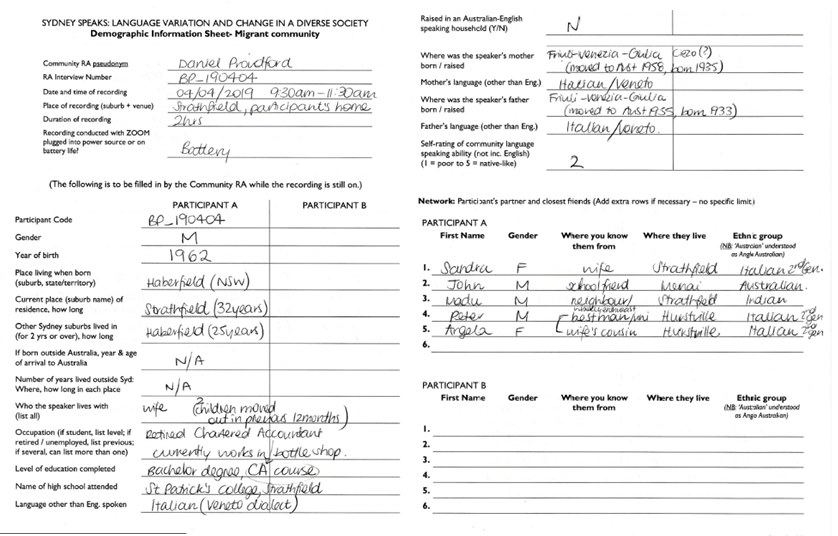 SYDNEY SPEAKS: LANGUAGE VARIATION AND CHANGE IN A DIVERSE SOCIETY
Demographic Information Sheet- Migrant community
Community RA pseudonym Daniel Proudford
RA Interview Number BP_190404
Date and time of recording 04/04/2019 9:30am-11:30am
Place of recording (suburb + venue) Strathfield, participant's home
Duration of recording 2hrs
Recording conducted with ZOOM
plugged into power source or on
battery life? Battery
(The following is to be filled in by the Community RA while the recording is still on.)
PARTICIPANT A PARTICIPANT B
Participant Code BP_190404
Gender M
Year of birth 1962
Place living when born
(suburb, state/territory) Haberfield (NSW)
Current place (suburb name) of
residence, how long Strathfield (32years)
Other Sydney suburbs lived in
(for 2 yrs or over), how long Haberfield (25years)
If born outside Australia, year & age
of arrival to Australia N/A
Number of years lived outside Syd:
Where, how long in each place N/A
Who the speaker lives with wife (3 children moved
(list all) out in previous 12months)
Occupation (if student, list level; if Retired Chartered Accountant
retired / unemployed, list previous;
if several, can list more than one) currently works in bottle shop.
Level of education completed Bachelor degree, CA course
Name of high school attended St Patrick's college, Strathfield
Language other than Eng. spoken Italian (Veneto dialect)
Raised in an Australian-English
speaking household (Y/N) N
Where was the speaker's mother Friuli-Venezia-Giulia
born / raised (moved to Aust 1958, born 1935)
Mother's language (other than Eng.) Italian/Veneto
Where was the speaker's father Friuli-Venezia-Giulia
born / raised (moved to Aust 1955, born 1933)
Father's language (other than Eng.) Italian/Veneto.
Self-rating of community language
speaking ability (not inc. English)
(1 = poor to 5 = native-like) 2
Network: Participant's partner and closest friends (Add extra rows if necessary – no specific limit)
PARTICIPANT A
First Name Gender Where you know them from Where they live Ethnic group
(NB: 'Australian' understood
as Anglo Australian)
1. Sandra F wife Strathfield Italian 2nd Gen.
2. John M school friend Menai Australian.
3. M neighbour/ Strathfield Indian
4. Peter M best man/uni Hurstville Italian 2nd gen
5. Angela F wife's cousin Hurstville Italian 2nd gen
6.
PARTICIPANT B
First Name Gender Where you know them from Where they live Ethnic group
(NB: 'Australian' understood
as Ango Australian)
1.
2.
3.
4.
5.
6.